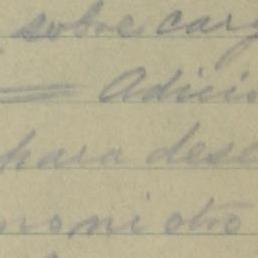 sobre carg
= Adicio
para dese
moni otro